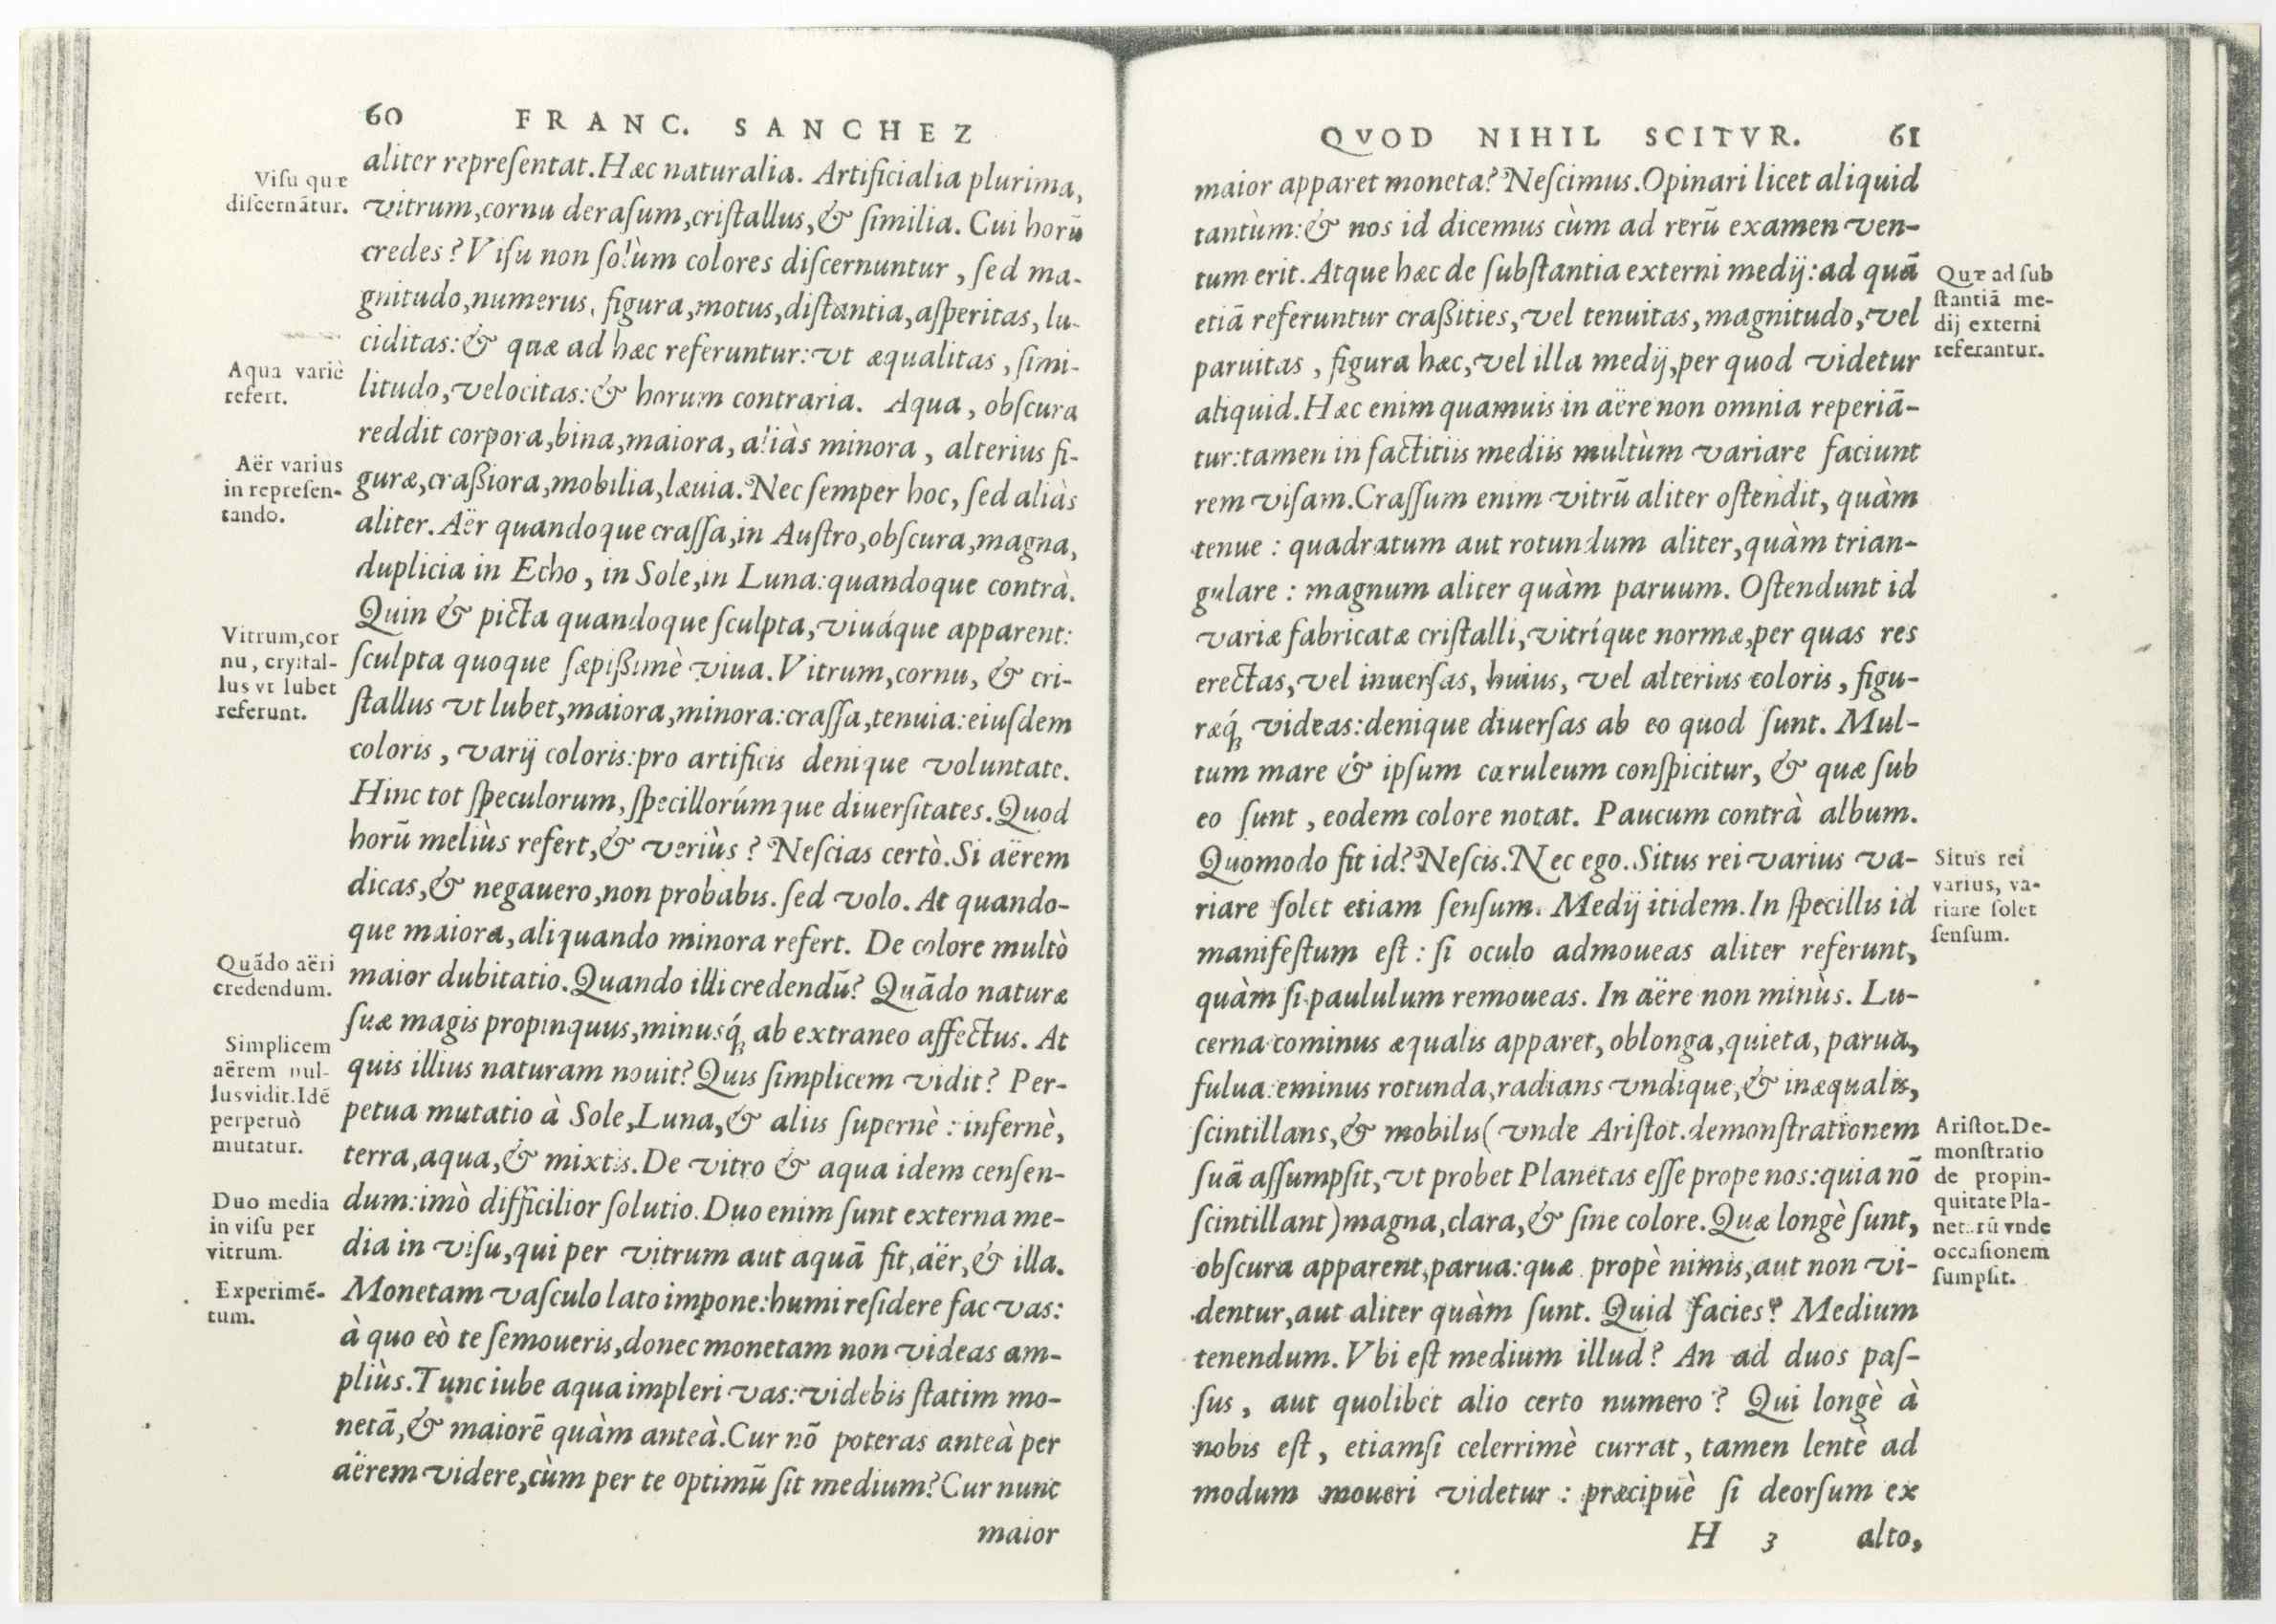 60 FRANC. SANCHEZ
Viſu quæ
diſcernãtur.
Aqua variè
refert.
Aër varius
in repreſen-
tando.
Vitrum, cor
nu, cryſtal-
lus vt lubet
referunt.
Quãdo aëri
credendum.
Simplicem
aërem nul-
lus vidit. Idẽ
perpetuò
mutatur.
Duo media
in viſu per
vitrum.
Experimẽ-
tum.
aliter repreſentat. Hæc naturalia. Artificialia plurima,
vitrum, cornu deraſum, criſtallus, & ſimilia. Cui horũ
credes? Viſu non ſolùm colores diſcernuntur, ſed ma-
gnitudo, numerus, figura, motus, diſtantia, aſperitas, lu-
ciditas: & quæ ad hæc referuntur: vt æqualitas, ſimi-
litudo, velocitas: & horum contraria. Aqua, obſcura
reddit corpora, bina, maiora, aliàs minora, alterius fi-
guræ, craßiora, mobilia, læuia. Nec ſemper hoc, ſed aliàs
aliter. Aër quandoque craſſa, in Auſtro, obſcura, magna,
duplicia in Echo, in Sole, in Luna: quandoque contrà.
Quin & picta quandoque ſculpta, viuáque apparent:
ſculpta quoque ſæpißimè viua. Vitrum, cornu, & cri-
ſtallus vt lubet, maiora, minora: craſſa, tenuia: eiuſdem
coloris, varij coloris: pro artificis denique voluntate.
Hinc tot ſpeculorum, ſpecillorúmque diuerſitates. Quod
horũ meliùs refert, & veriùs? Neſcias certò. Si aërem
dicas, & negauero, non probabis. ſed volo. At quando-
que maiora, aliquando minora refert. De colore multò
maior dubitatio. Quando illi credendũ? Quãdo naturæ
ſuæ magis propinquus, minusq́ꝫ ab extraneo affectus. At
quis illius naturam nouit? Quis ſimplicem vidit? Per-
petua mutatio à Sole, Luna, & aliis ſupernè: infernè,
terra, aqua, & mixtis. De vitro & aqua idem cenſen-
dum: imò difficilior ſolutio. Duo enim ſunt externa me-
dia in viſu, qui per vitrum aut aquã fit, aër, & illa.
Monetam vaſculo lato impone: humi reſidere fac vas:
à quo eò te ſemoueris, donec monetam non videas am-
pliùs. Tunc iube aqua impleri vas: videbis ſtatim mo-
netã, & maiorẽ quàm anteà. Cur nõ poteras anteà per
aërem videre, cùm per te optimũ ſit medium? Cur nunc
maior
QVOD NIHIL SCITVR. 61
maior apparet moneta? Neſcimus. Opinari licet aliquid
tantùm: & nos id dicemus cùm ad rerũ examen ven-
tum erit. Atque hæc de ſubſtantia externi medij: ad quã
etiã referuntur craßities, vel tenuitas, magnitudo, vel
paruitas, figura hæc, vel illa medij, per quod videtur
aliquid. Hæc enim quamuis in aëre non omnia reperiã-
tur: tamen in factitiis mediis multùm variare faciunt
rem viſam. Craſſum enim vitrũ aliter oſtendit, quàm
tenue: quadratum aut rotundum aliter, quàm trian-
gulare: magnum aliter quàm paruum. Oſtendunt id
variæ fabricatæ criſtalli, vitríque normæ, per quas res
erectas, vel inuerſas, huius, vel alterius coloris, figu-
ræq́ꝫ videas: denique diuerſas ab eo quod ſunt. Mul-
tum mare & ipſum cæruleum conſpicitur, & quæ ſub
eo ſunt, eodem colore notat. Paucum contrà album.
Quomodo fit id? Neſcis. Nec ego. Situs rei varius va-
riare ſolet etiam ſenſum. Medij itidem. In ſpecillis id
manifeſtum eſt: ſi oculo admoueas aliter referunt,
quàm ſi paululum remoueas. In aëre non minùs. Lu-
cerna cominus æqualis apparet, oblonga, quieta, parua,
fulua: eminus rotunda, radians vndique, & inæqualis,
ſcintillans, & mobilis (vnde Ariſtot. demonſtrationem
ſuã aſſumpſit, vt probet Planetas eſſe prope nos: quia nõ
ſcintillant) magna, clara, & ſine colore. Quæ longè ſunt,
obſcura apparent, parua: quæ propè nimis, aut non vi-
dentur, aut aliter quàm ſunt. Quid facies? Medium
tenendum. Vbi eſt medium illud? An ad duos paſ-
ſus, aut quolibet alio certo numero? Qui longè à
nobis eſt, etiamſi celerrimè currat, tamen lentè ad
modum moueri videtur: præcipuè ſi deorſum ex
H 3 alto,
Quæ ad ſub
ſtantiã me-
dij externi
referantur.
Situs rei
varius, va-
riare ſolet
ſenſum.
Ariſtot. De-
monſtratio
de propin-
quitate Pla-
netarũ vnde
occaſionem
ſumpſit.